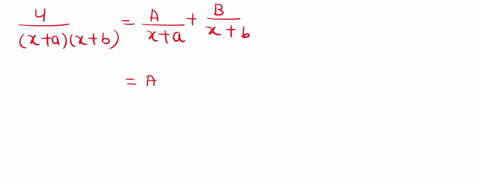 4/((x+a)(x+b)) = A/(x+a) + B/(x+b)
= A